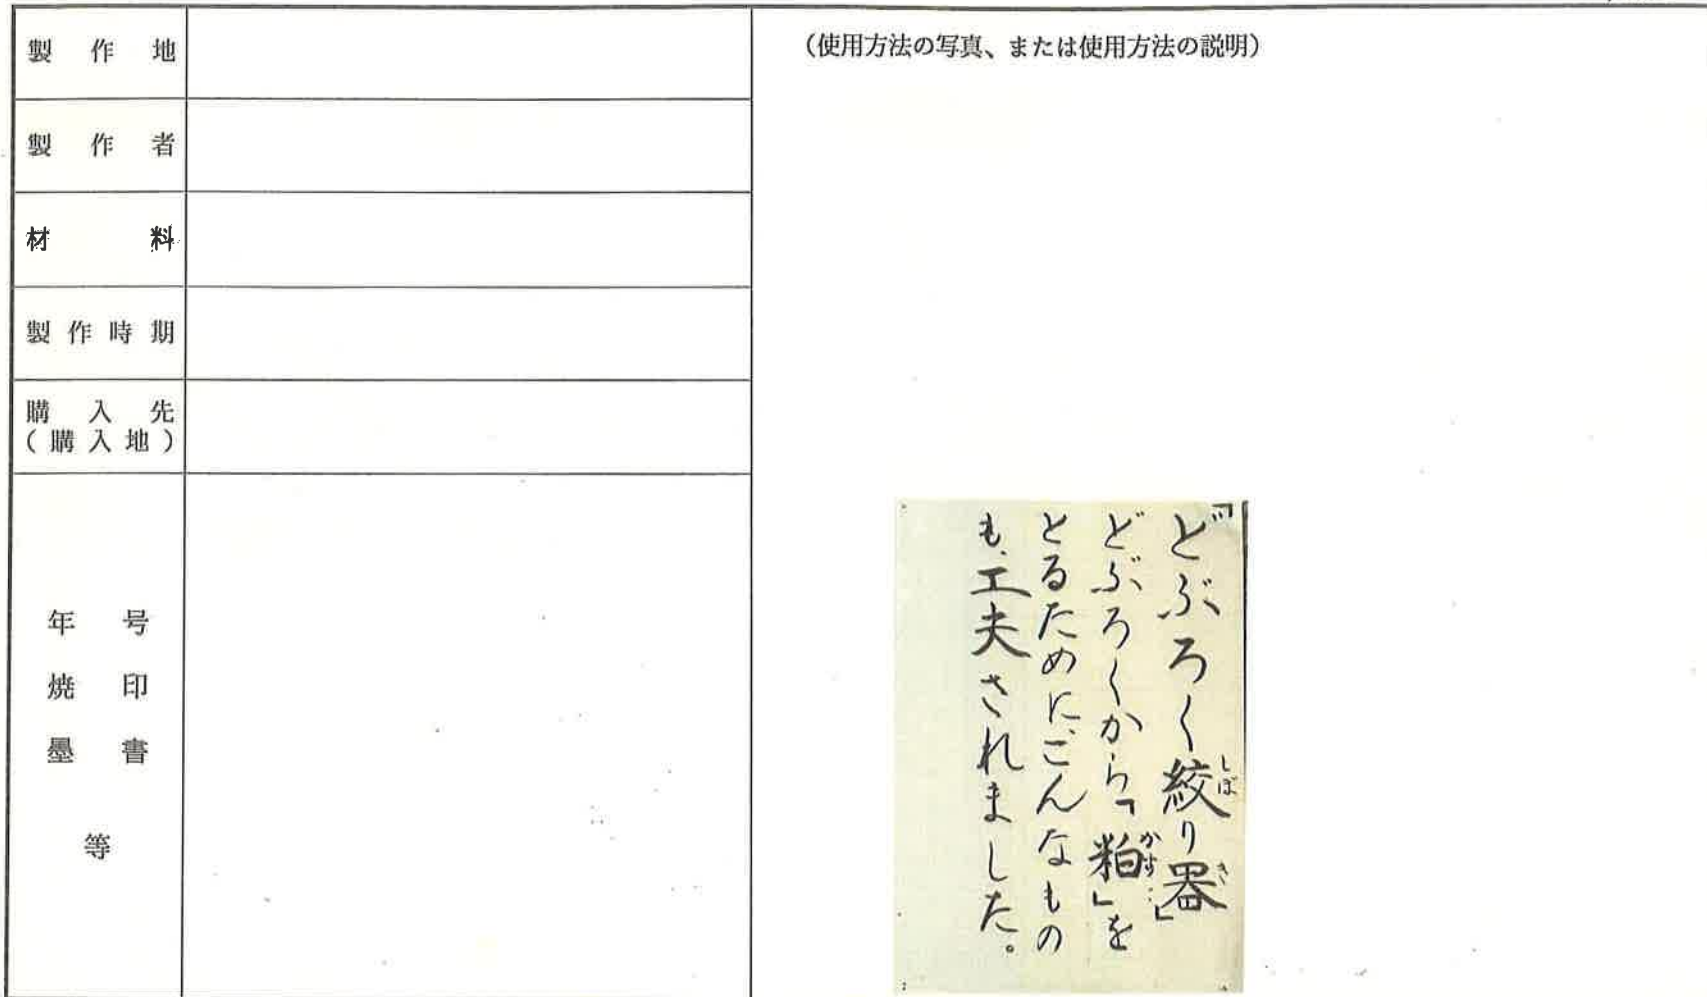 製作地
製作者
材料
製作時期
購入先
（購入地）
年号
焼印
墨書
等
（使用方法の写真、または使用方法の説明）
「どぶろく絞り器」
しぼ
き
どぶろくから「粕」を
かす
とるために、こんなもの
も、工夫されました。